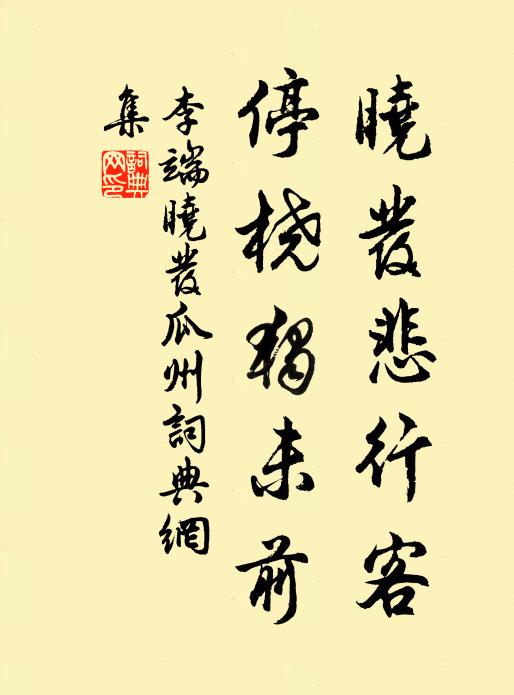 曉發悲行客
停橈獨未前
李端曉發瓜州詞典網
集
詞典
网印